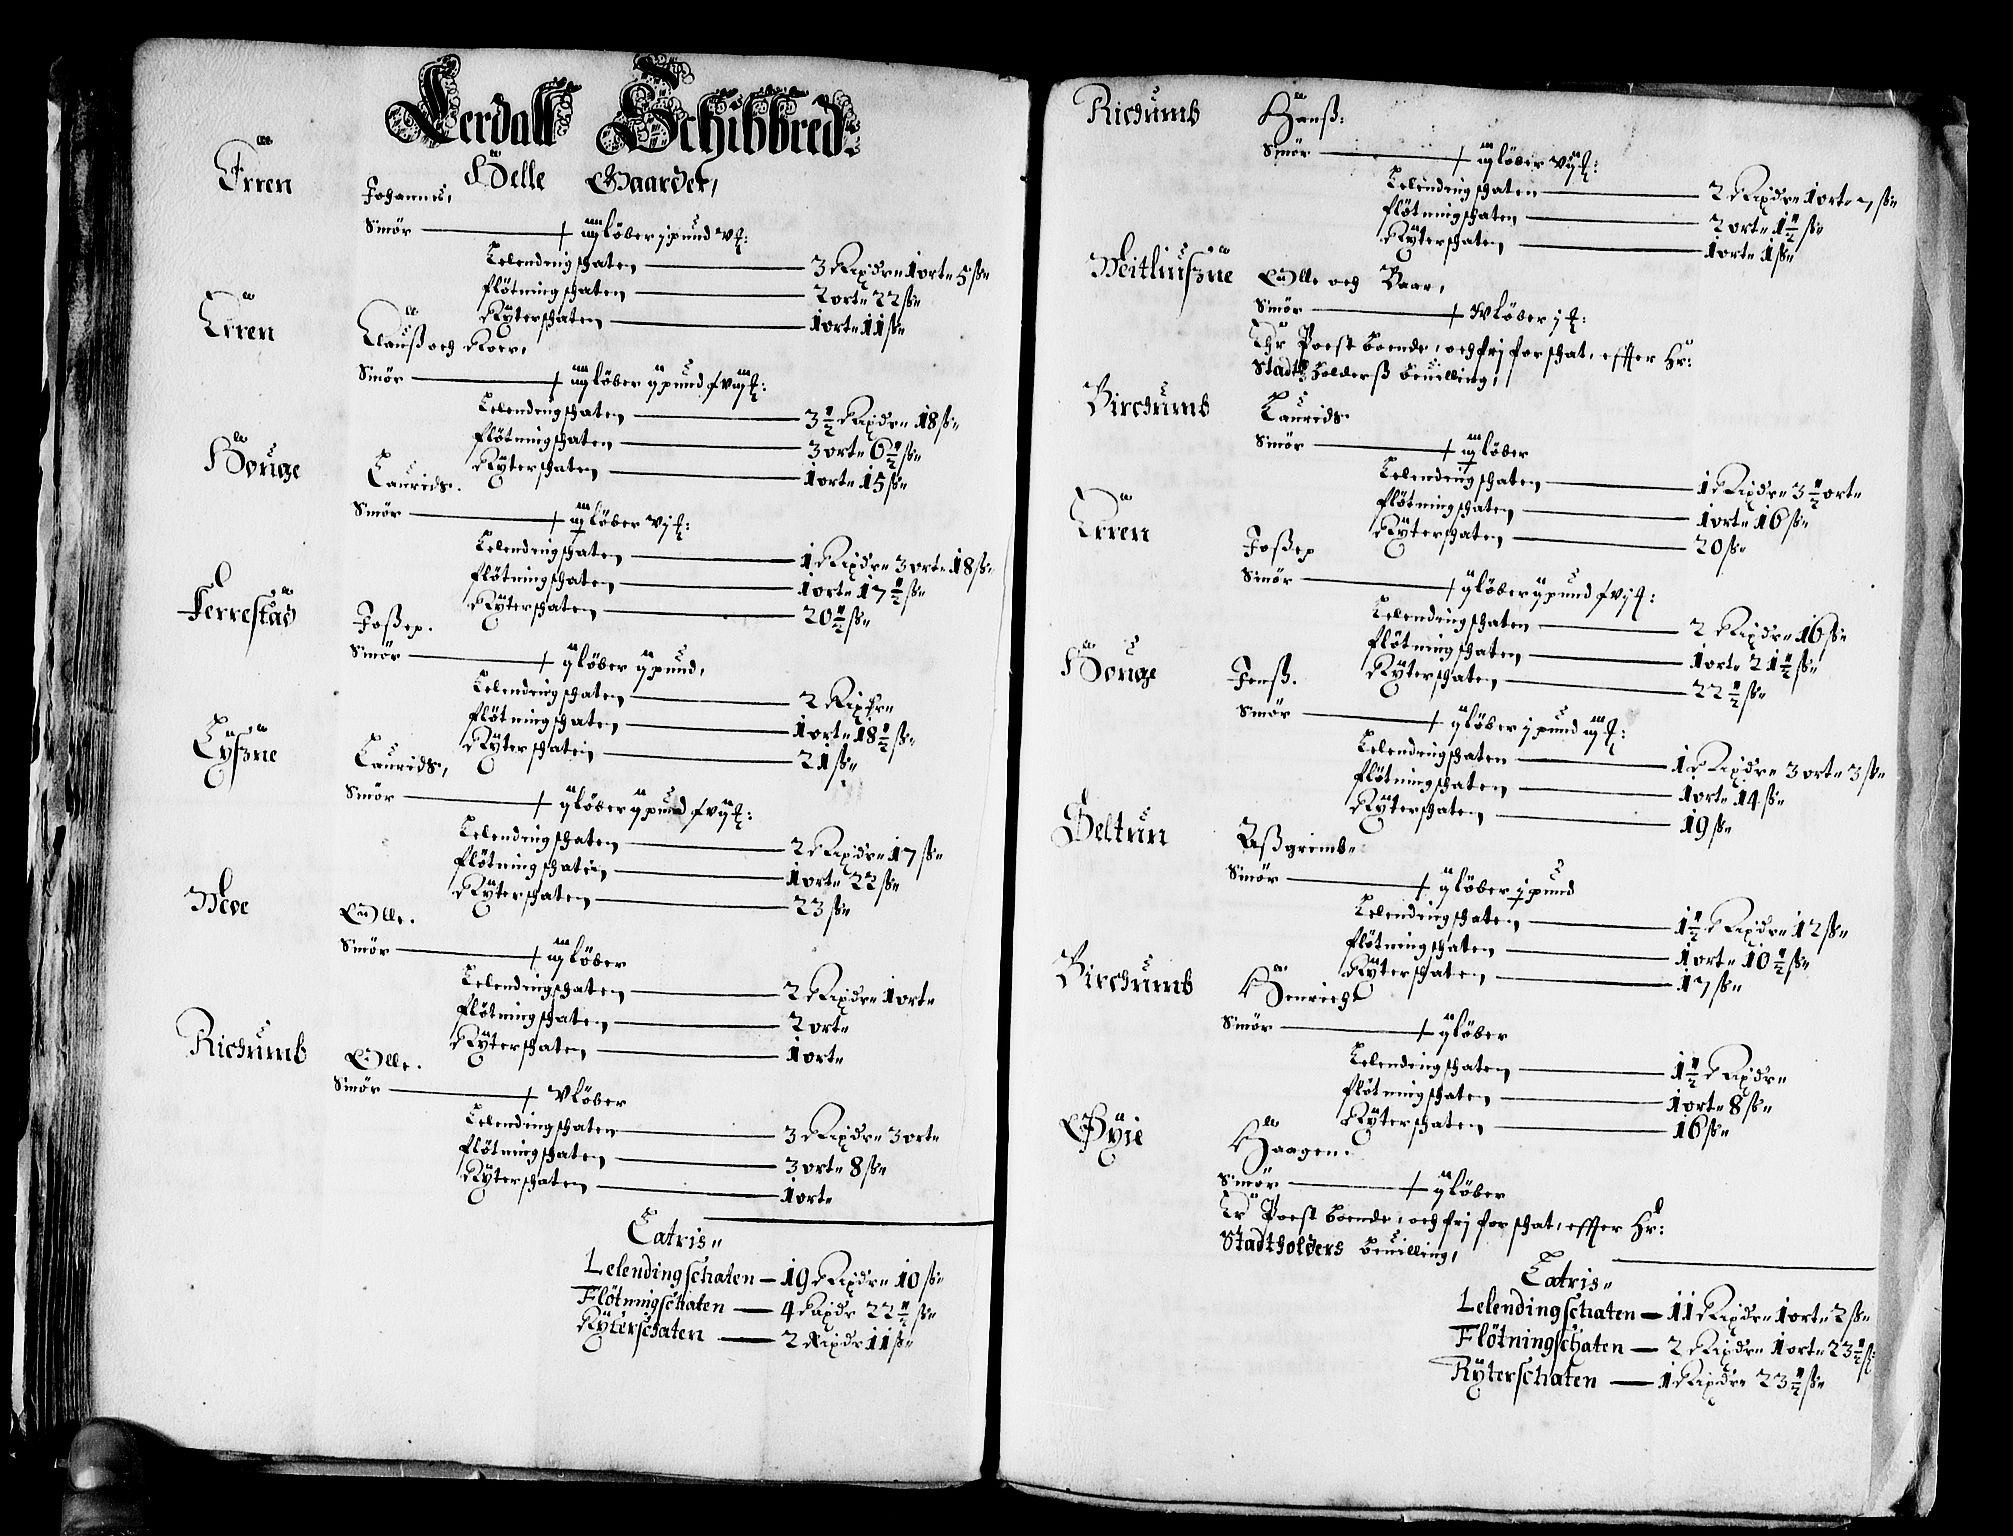 Lerdals Schibbred.
Helle Gaarder,
Erren
Johannes,
Smör — + iiij löber j pund v ℔:
Lelending schaten — 3 Rixdr 1 ort 5 ß
flötning schaten — 2 ort 22 ß
Ryter schaten — 1 ort 11 ß
Erren
Clauß och Roer,
Smör — + iiij löber ij pund f viij ℔:
Lelending schaten — 3½ Rixdr 18 ß
flötning schaten — 3 ort 6½ ß
Ryter schaten — 1 ort 15 ß
Houge
Laurids.
Smör — + iij löber vj ℔:
Lelending schaten — 1 Rixdr 3 ort 18 ß
flötning schaten — 1 ort 17½ ß
Ryter schaten — 20½ ß
Ferrestad
Joßep.
Smör — + ij löber ij pund,
Lelending schaten — 2 Rixdr
flötning schaten — 1 ort 18½ ß
Ryter schaten — 21 ß
Lyszne
Laurids,
Smör — + ij löber ij pund f vij ℔:
Lelending schaten — 2 Rixdr 17 ß
flötning schaten — 1 ort 22 ß
Ryter schaten — 23 ß
Moe
Olle.
Smör — + iij löber
Lelending schaten — 2 Rixdr 1 ort
flötning schaten — 2 ort
Ryter schaten — 1 ort
Richumb
Olle.
Smör — + v löber
Lelending schaten — 3 Rixdr 3 ort
flötning schaten — 3 ort 8 ß
Ryter schaten — 1 ort
Latris
Lelending schaten — 19 Rixdr 10 ß
Flötning schaten — 4 Rixdr 22½ ß
Ryter schaten — 2 Rixdr 11 ß
Richumb
Hanß:
Smör — + iij löber vij ℔:
Lelending schaten — 2 Rixdr 1 ort 7 ß
flötning schaten — 2 ort 1½ ß
Ryter schaten — 1 ort 1 ß
Meitliuszne
Olle och Baar,
Smör — + iv löber j ℔:
Ehr Poest boende, och frj for schat, effter Hr:
Stadtholderß beuilling,
Birchumb
Laurids
Smör — + iij löber
Lelending schaten — 1 Rixdr 3½ ort
flötning schaten — 1 ort 16 ß
Ryter schaten — 20 ß
Erren
Joßep
Smör — + ij löber ij pund f vj ℔:
Lelending schaten — 2 Rixdr 16 ß
flötning schaten — 1 ort 21½ ß
Ryter schaten — 22½ ß
Houge
Jenß.
Smör — + ij löber j pund iij ℔:
Lelending schaten — 1 Rixdr 3 ort 3 ß
flötning schaten — 1 ort 14 ß
Ryter schaten — 19 ß
Geltun
Aßgrimb
Smör — + ij löber j pund
Lelending schaten — 1½ Rixdr 12 ß
flötning schaten — 1 ort 10½ ß
Ryter schaten — 17 ß
Birchumb
Henrich
Smör — + ij löber
Lelending schaten — 1½ Rixdr
flötning schaten — 1 ort 8 ß
Ryter schaten — 16 ß
Øyje
Haagen.
Smör — + ij löber
Er Poest boende, och frj for schat, effter Hr:
Stadtholders beuilling,
Latris
Lelending schaten — 11 Rixdr 1 ort 2 ß
Flötning schaten — 2 Rixdr 1 ort 23½ ß
Ryter schaten — 1 Rixdr 23½ ß